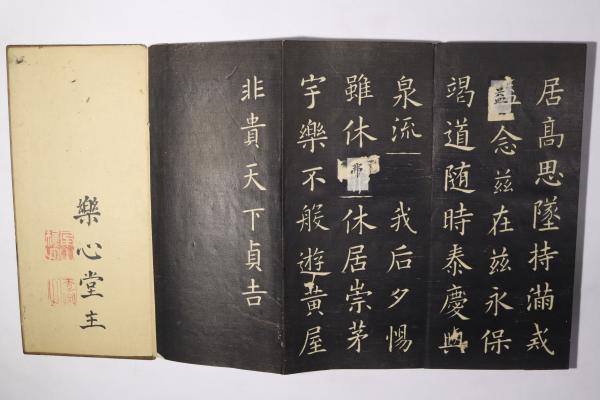 居高思墜持滿戒
念茲在茲永保
竭道随時泰慶與
泉流我后夕惕
雖休弗休居崇茅
宇樂不般遊黃屋
非貴天下貞吉
樂心堂主